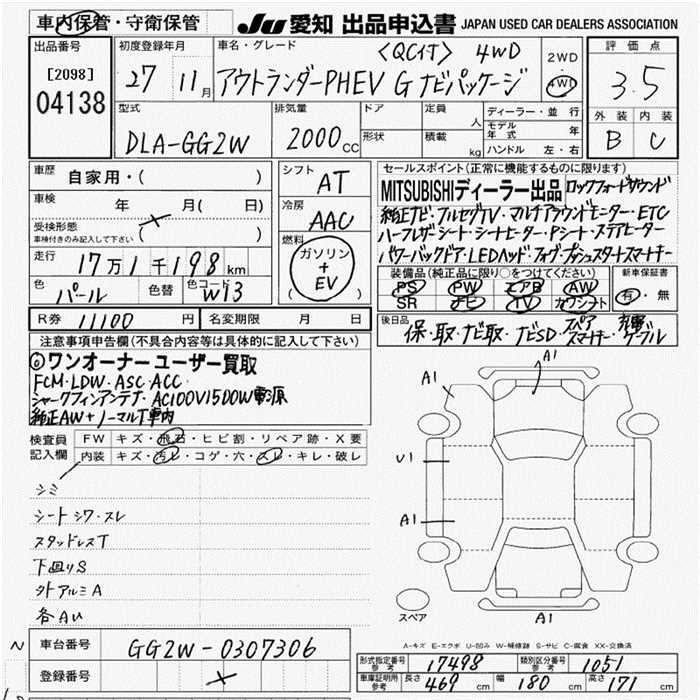 車内保管・守衛保管
JU 愛知 出品申込書 JAPAN USED CAR DEALERS ASSOCIATION
出品番号
[2098]
04138
初度登録年月
27 11月
車名・グレード
〈QC付〉 4WD
アウトランダーPHEV G ナビパッケージ
2WD
4WD
評価点
3.5
外装 内装
B C
型式
DLA-GG2W
排気量
2000cc
ドア
形状
定員 人
積載 kg
ディーラー・並行
モデル年式 年
ハンドル 左・右
車歴
自家用・( )
車検 年 月( 日)
受検形態
車検付きのみ記入して下さい ( )
走行
17万1千198km
色
パール
色替
色コード
W13
シフト
AT
冷房
AAC
燃料
ガソリン
+
EV
( )
セールスポイント(正常に機能するものに限ります)
MITSUBISHIディーラー出品 ロックフォードサウンド
純正ナビ・フルセグTV・マルチアラウンドモニター・ETC
ハーフレザーシート・シートヒーター・Pシート・ステアヒーター
パワーバックドア・LEDヘッド・フォグ・プッシュスタートスマートキー
装備品(純正品に限り○をつけてください)
PS PW エアB AW
SR ナビ TV カワシート
新車保証書
有・無
R券 11100円
名変期限 月 日
後日品
保・取・ナビ取・ナビSD・スペアスマートキー・充電ケーブル
注意事項申告欄(不具合内容等は具体的に記入して下さい)
◎ワンオーナーユーザー買取
FCM・LDW・ASC・ACC
シャークフィンアンテナ・AC100V1500W電源
純正AW+ノーマルT車内
検査員
記入欄
FW キズ・飛石・ヒビ割・リペア跡・X要
内装 キズ・汚レ・コゲ・穴・スレ・キレ・破レ
シミ
シートシワ・スレ
スタッドレスT
下回りS
外アルミA
各AU
A1
A1
U1
A1
A1
スペア
A-キズ E-エクボ U-凹み W-補修跡 S-サビ C-腐食 XX-交換済
車台番号
GG2W-0307306
登録番号
型式指定番号
参考
17498
類別区分番号
参考
1051
車庫証明用
参考
長さ 469cm
幅 180cm
高さ 171cm